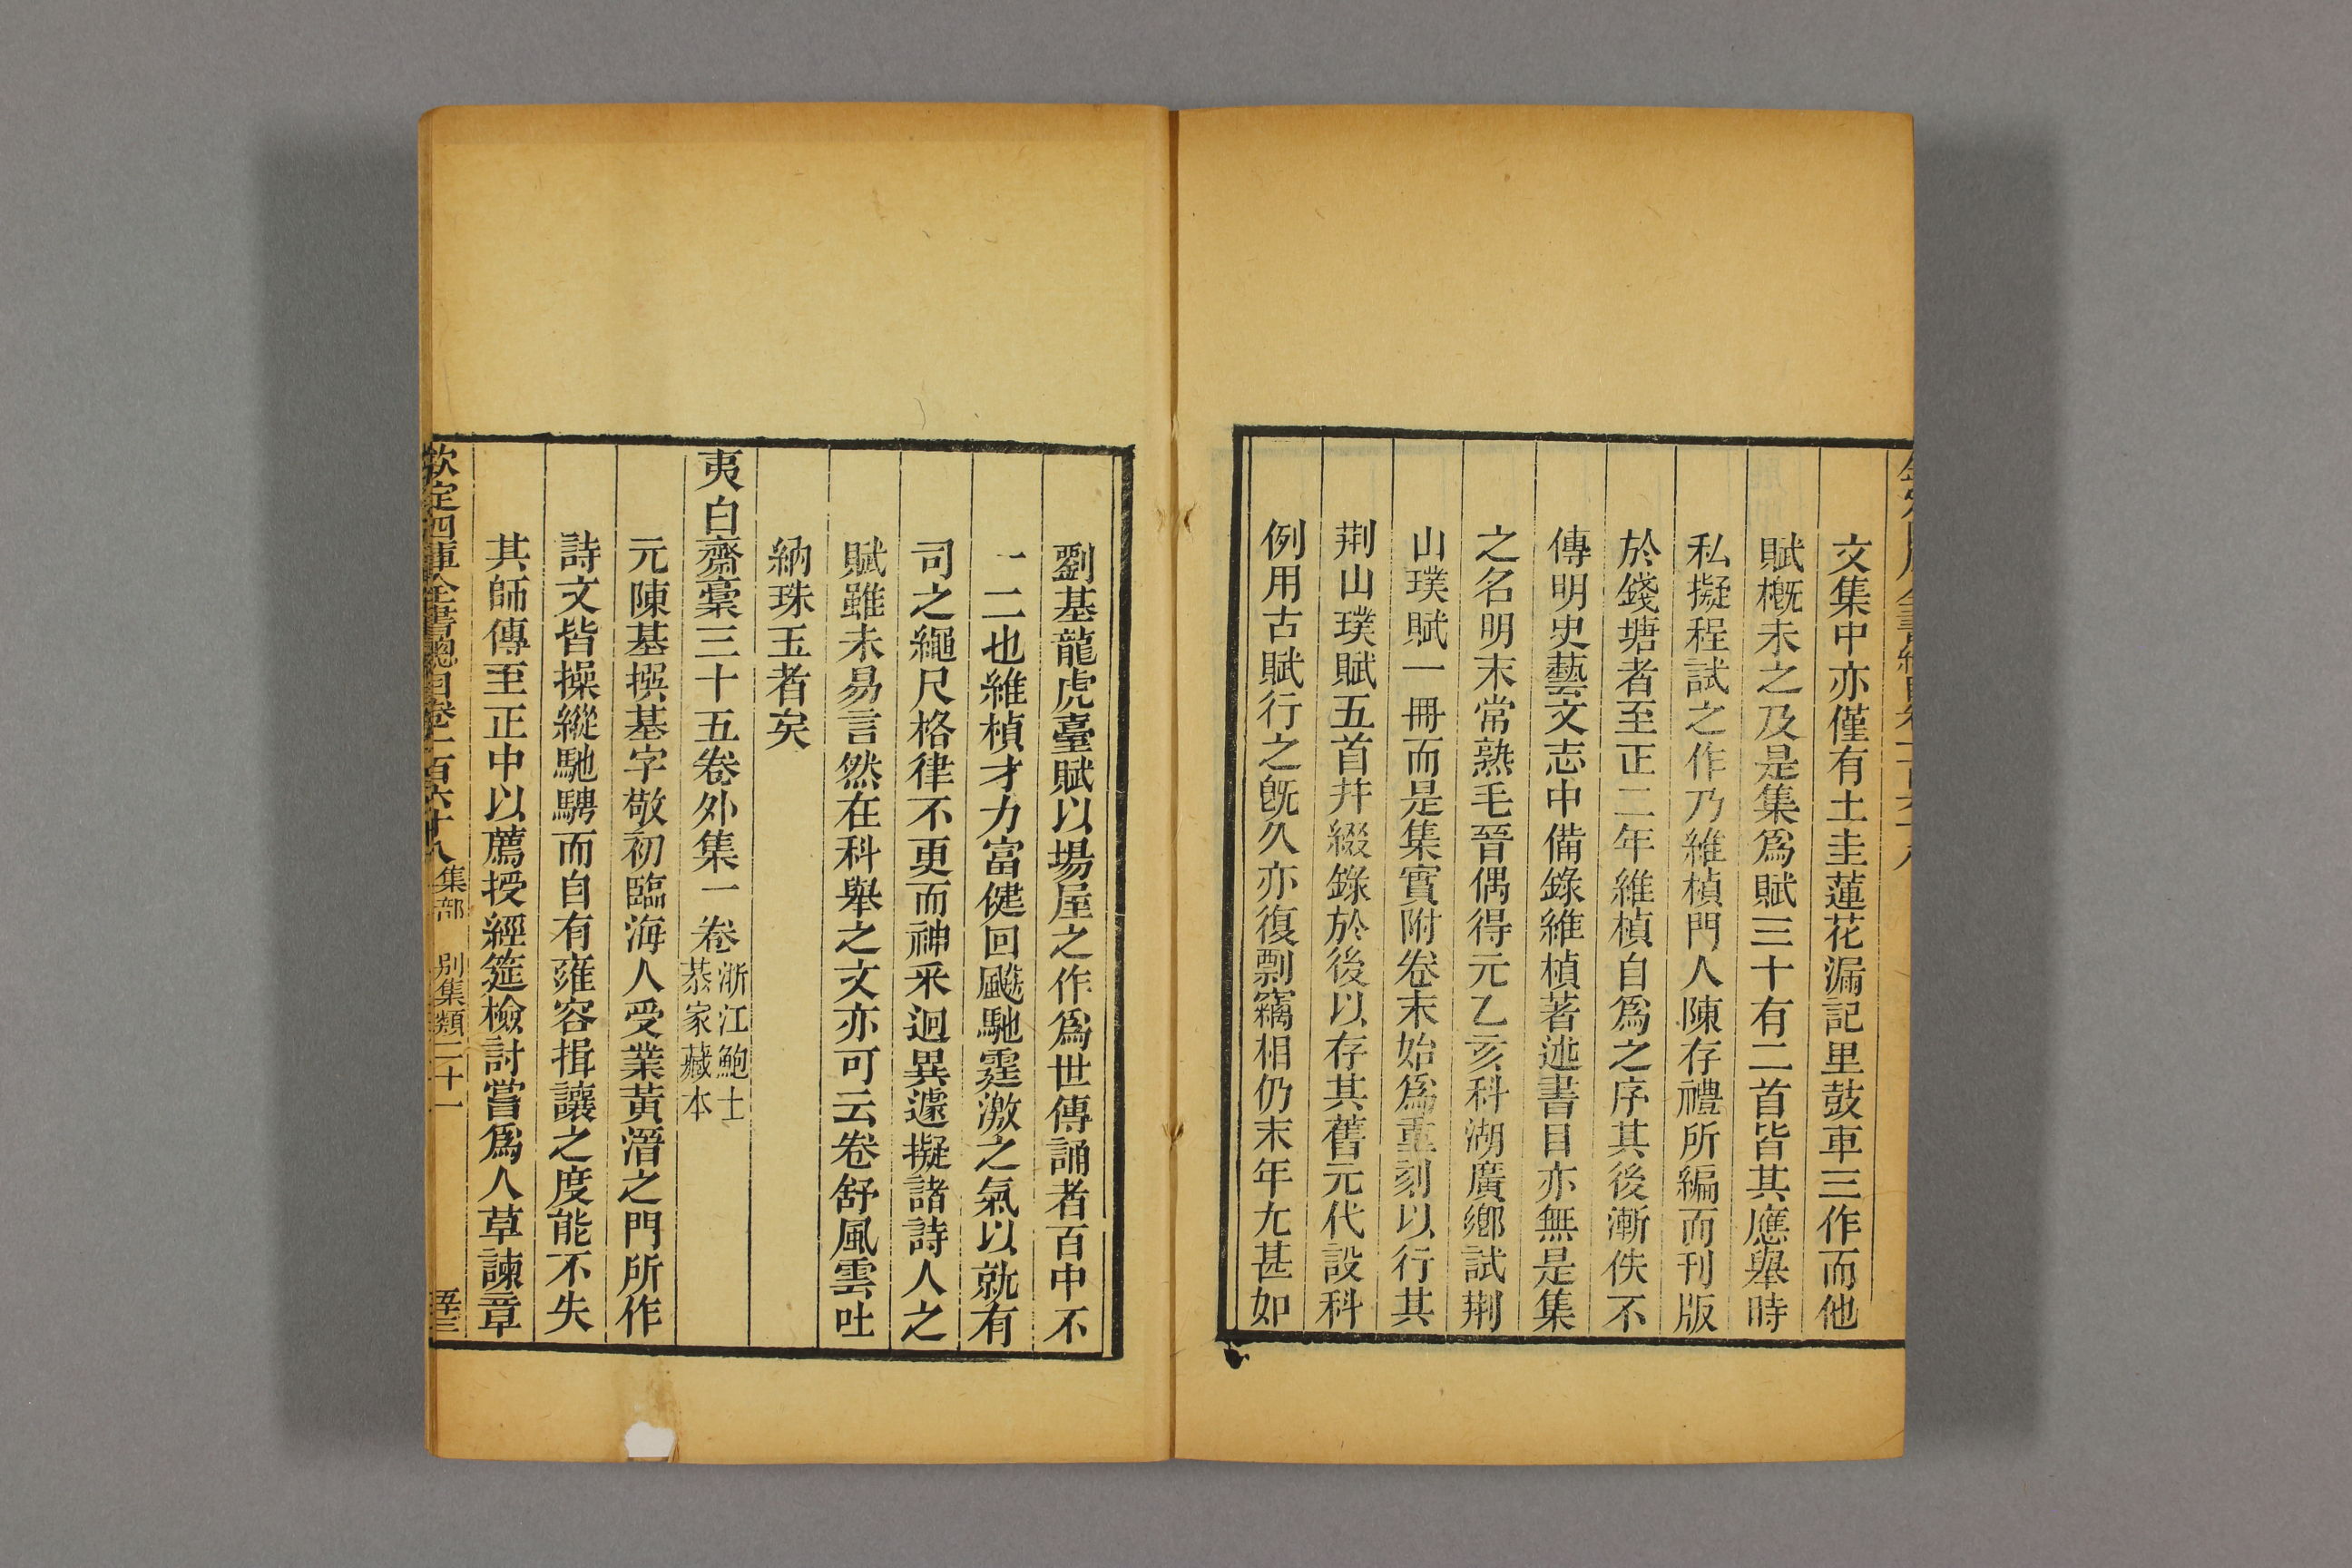 文集中亦僅有土圭蓮花漏記里鼓車三作而他
賦槪未之及是集爲賦三十有二首皆其應舉時
私擬程試之作乃維楨門人陳存禮所編而刊版
於錢塘者至正二年維楨自爲之序其後漸佚不
傳明史藝文志中備錄維楨著述書目亦無是集
之名明末常熟毛晉偶得元乙亥科湖廣鄉試荆
山璞賦一冊而是集實附卷末始爲重刻以行其
荆山璞賦五首幷綴錄於後以存其舊元代設科
例用古賦行之旣久亦復剽竊相仍末年尤甚如
劉基龍虎臺賦以場屋之作爲世傳誦者百中不
一二也維楨才力富健回飈馳霆激之氣以就有
司之繩尺格律不更而神采迥異遽擬諸詩人之
賦雖未易言然在科舉之文亦可云卷舒風雲吐
納珠玉者矣
夷白齋藁三十五卷外集一卷
浙江鮑士
恭家藏本
元陳基撰基字敬初臨海人受業黃溍之門所作
詩文皆操縱馳騁而自有雍容揖讓之度能不失
其師傳至正中以薦授經筵檢討嘗爲人草諫章
欽定四庫全書總目卷一百六十八
集部 別集類二十一